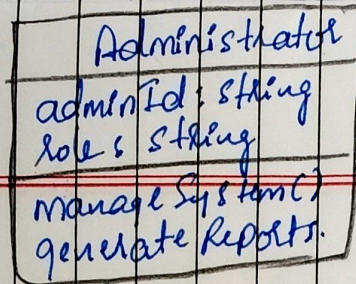 Administrator
adminId: string
role: string
manageSystem()
generate Reports.